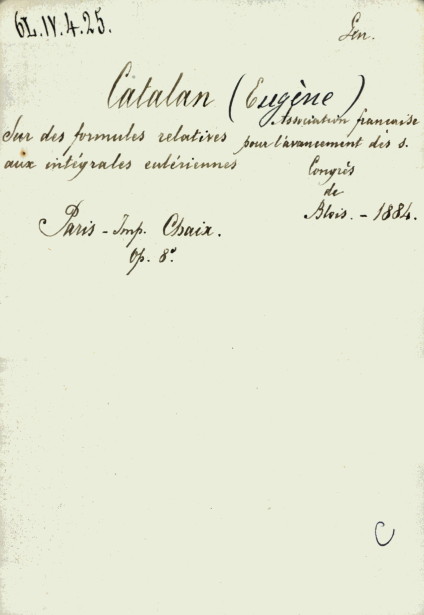 6L.IV.4.25.
Gen.
Catalan (Eugène)
Sur des formules relatives
aux intégrales eulériennes
Association francaise
pour l'avancement des s.
Congrès
de
Blois. - 1884.
Paris - Imp. Chaix.
Op. 8°.
C